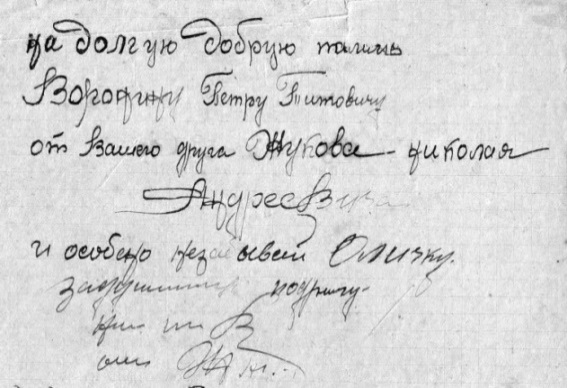 на долгую добрую память
Воронину Петру Титовичу
от вашего друга Жукова николая
Андреевича
и особено незабывай Оличку.
задушивную подругу